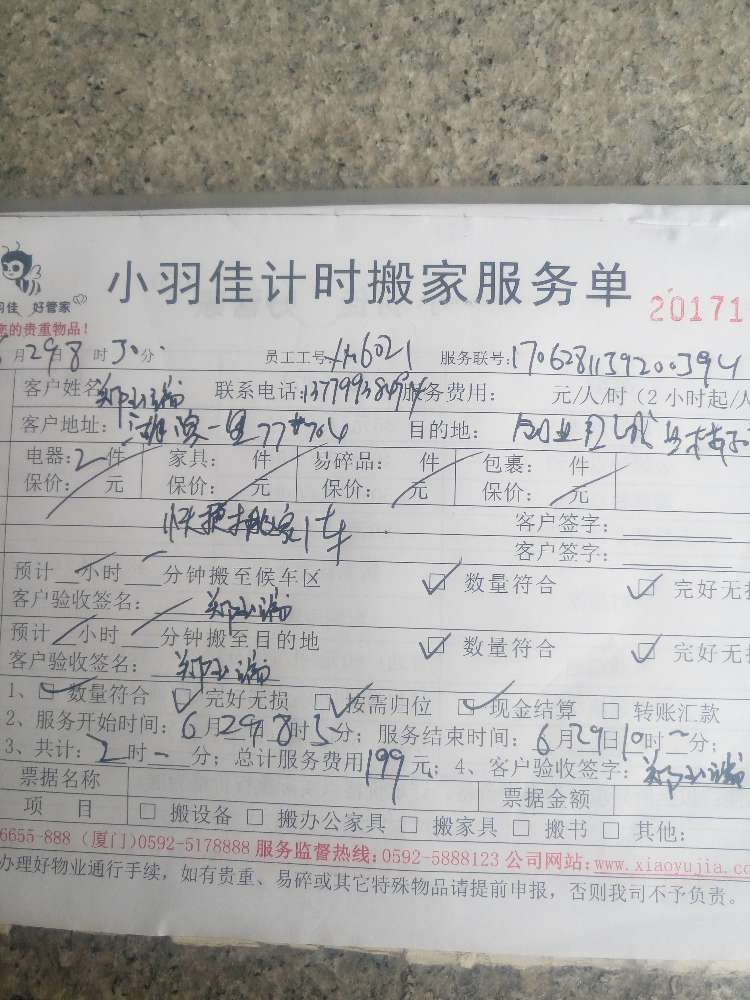 小羽佳计时搬家服务单
20171
羽佳 好管家
您的贵重物品!
月29日8时30分 员工工号: 6021 服务联号:1706281139200394
客户姓名 联系电话: 服务费用: 元/人/时(2小时起/人
客户地址: 一里77#704 目的地:
电器:2件 家具: 件 易碎品: 件 包裹: 件
保价: 元 保价: 元 保价: 元 保价: 元
搬家1车 客户签字:
客户签字:
预计 小时 分钟搬至候车区 ☑ 数量符合 ☑ 完好无损
客户验收签名:
预计 小时 分钟搬至目的地 ☑ 数量符合 ☑ 完好无
客户验收签名:
1、☑ 数量符合 ☑ 完好无损 ☑ 按需归位 ☑ 现金结算 □ 转账汇款
2、服务开始时间:6月29日8时 分;服务结束时间:6月29日10时 分;
3、共计:2时 分;总计服务费用199元;4、客户验收签字:
票据名称 票据金额
项 目 □ 搬设备 □ 搬办公家具 □ 搬家具 □ 搬书 □ 其他:
6655-888 (厦门)0592-5178888 服务监督热线:0592-5888123 公司网站:www.xiaoyujia.co
办理好物业通行手续,如有贵重、易碎或其它特殊物品请提前申报,否则我司不予负责。